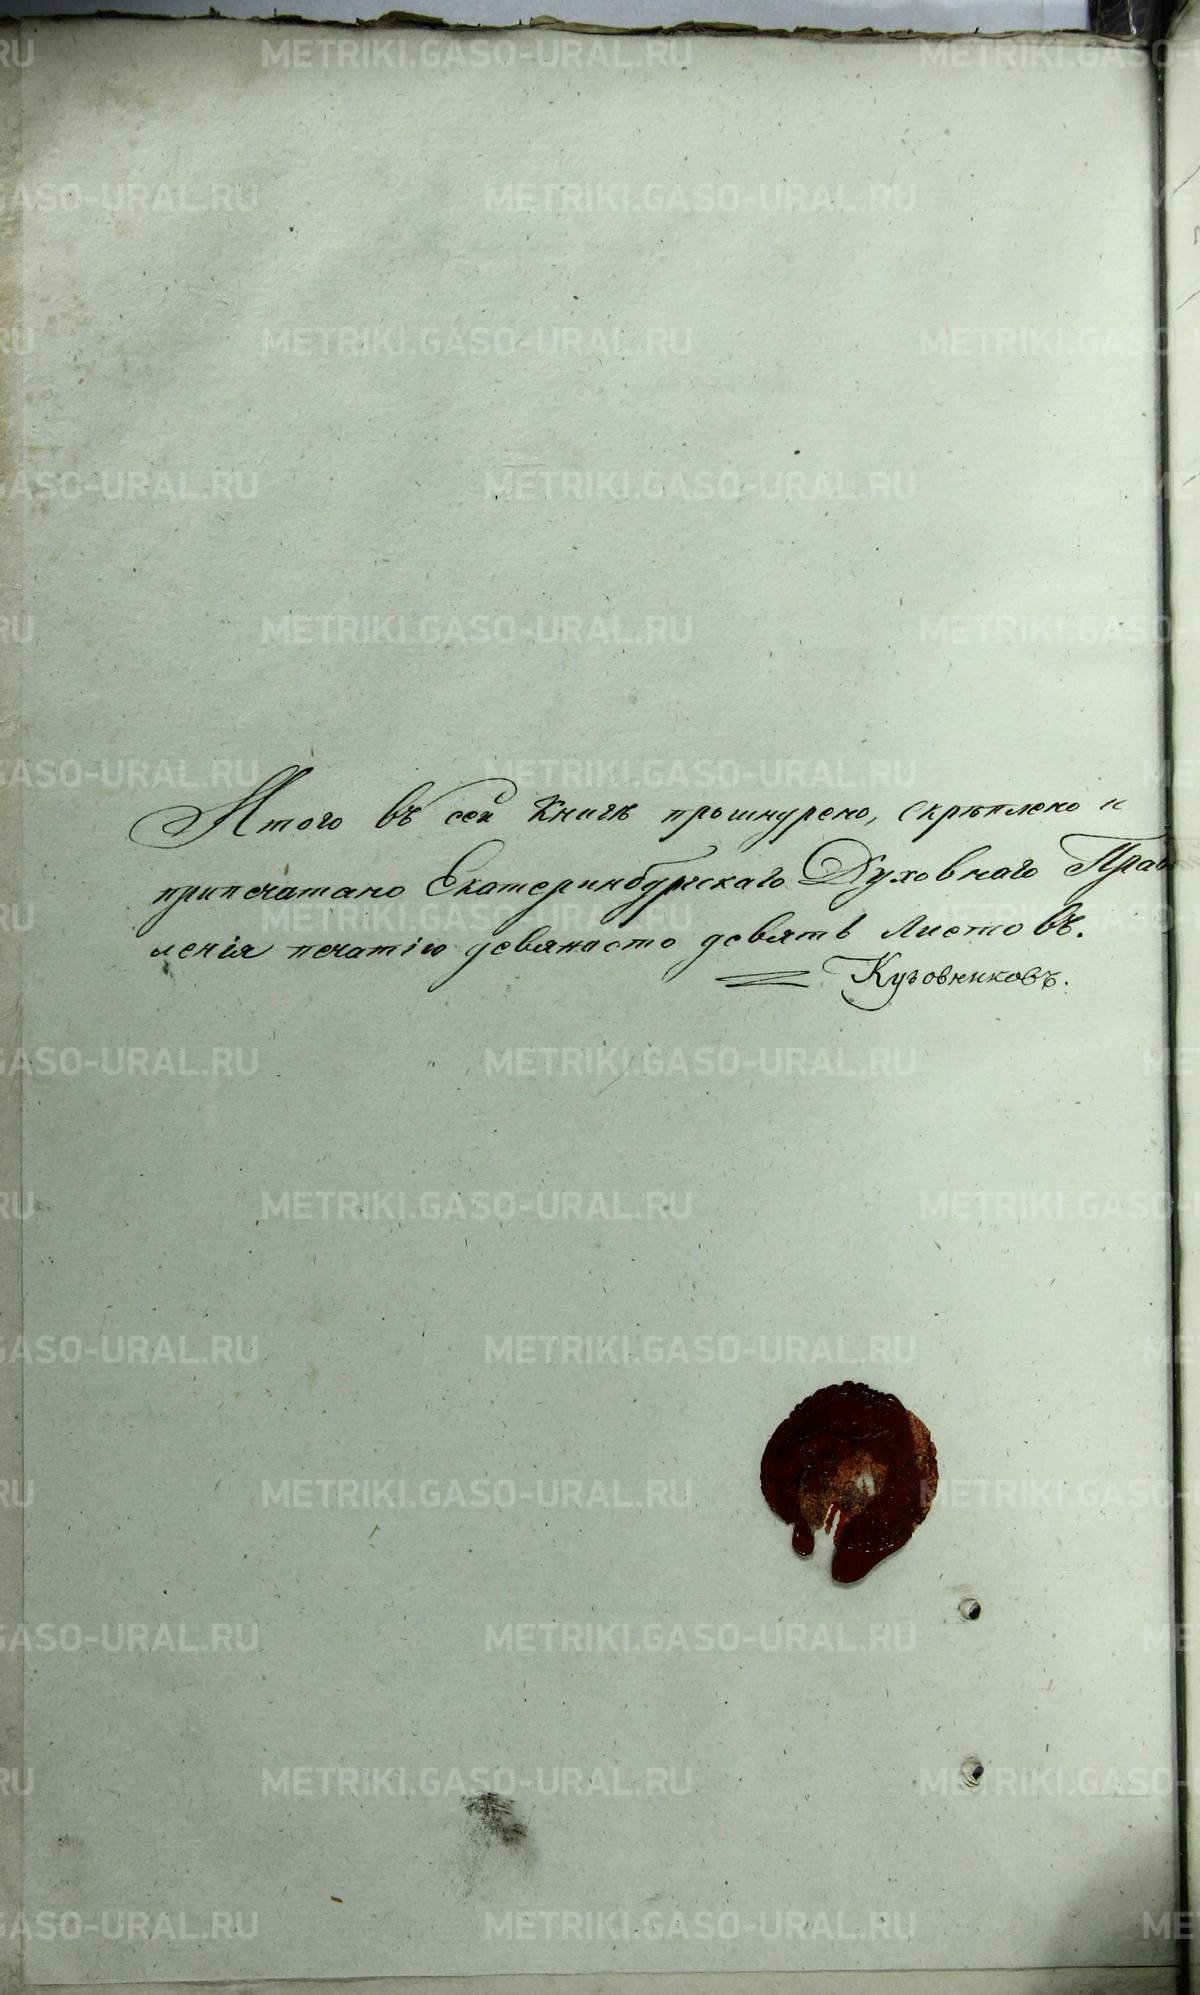 Итого въ сей Книгѣ прошнурено, скрѣплено и
припечатано Екатеринбургскаго Духовнаго Прав
ленія печатію девяносто девять листовъ.
Кузовниковъ.
METRIKI.GASO-URAL.RU